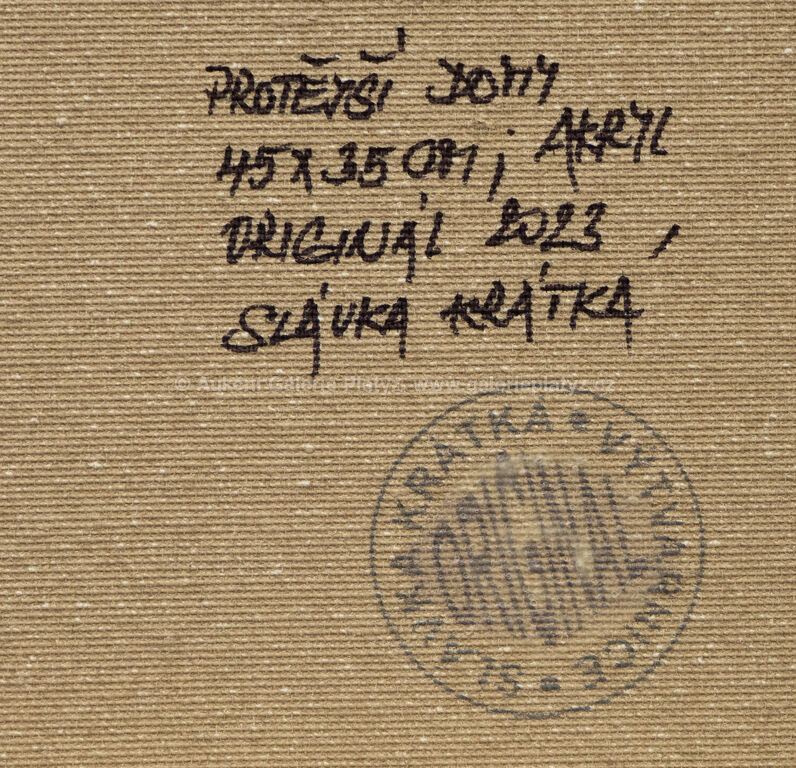 PROTĚJŠÍ DOMY
45X35 CM, AKRYL
ORIGINÁL 2023,
SLÁVKA KRÁTKA
© Aukční Galerie Platýz, www.galerieplatyz.cz
SLÁVKA KRÁTKA • VÝTVARNICE •
ORIGINAL